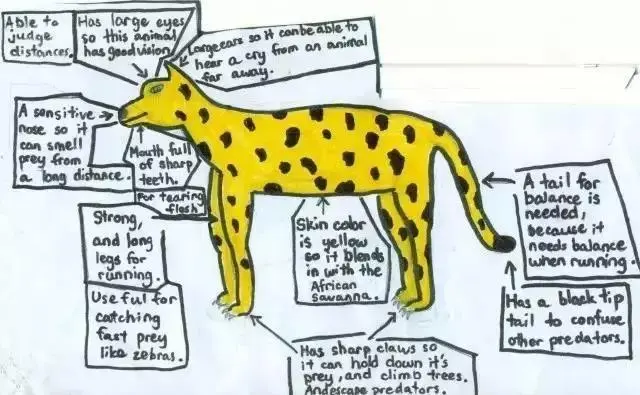 Able to
judge
distances.
Has large eyes
so this animal
has good vision
Large ears so it can be able to
hear a cry from an animal
far away.
A sensitive
nose so it
can smell
prey from
a long distance.
Mouth full
of sharp
teeth.
For tearing
flesh
Strong,
and long
legs for
running.
Useful for
catching
fast prey
like zebras.
Skin color
is yellow
so it blends
in with the
African
savanna.
A tail for
balance is
needed,
because it
needs balance
when running.
Has a black tip
tail to confuse
other predators.
Has sharp claws so
it can hold down it's
prey, and climb trees.
And escape predators.